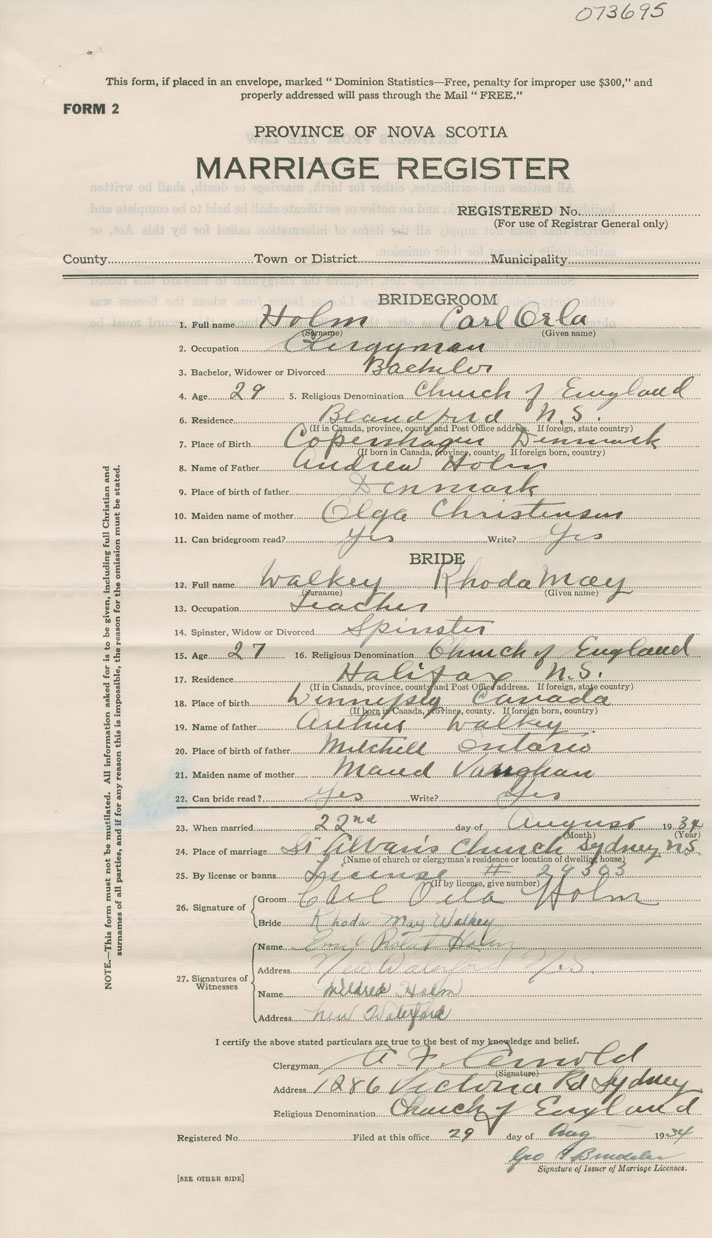 073695
This form, if placed in an envelope, marked “ Dominion Statistics—Free, penalty for improper use $300,” and
properly addressed will pass through the Mail “ FREE.”
FORM 2
PROVINCE OF NOVA SCOTIA
MARRIAGE REGISTER
REGISTERED No.
(For use of Registrar General only)
County Town or District Municipality
BRIDEGROOM
1. Full name Holm Carl Orla
(Surname) (Given name)
2. Occupation Clergyman
3. Bachelor, Widower or Divorced Bachelor
4. Age 29 5. Religious Denomination Church of England
6. Residence Blandford N.S.
(If in Canada, province, county and Post Office address. If foreign, state country)
7. Place of Birth Copenhagen Denmark
(If born in Canada, province, county. If foreign born, country)
8. Name of Father Andrew Holm
9. Place of birth of father Denmark
10. Maiden name of mother Olga Christensen
11. Can bridegroom read? Yes Write? Yes
BRIDE
12. Full name Walkey Rhoda May
(Surname) (Given name)
13. Occupation Teacher
14. Spinster, Widow or Divorced Spinster
15. Age 27 16. Religious Denomination Church of England
17. Residence Halifax N.S.
(If in Canada, province, county and Post Office address. If foreign, state country)
18. Place of birth Winnipeg Canada
(If born in Canada, province, county. If foreign born, country)
19. Name of father Arthur Walkey
20. Place of birth of father Mitchell Ontario
21. Maiden name of mother Maud Vaughan
22. Can bride read? Yes Write? Yes
23. When married 22nd day of August 1934
(Month) (Year)
24. Place of marriage St Alban's Church Sydney N.S.
(Name of church or clergyman's residence or location of dwelling house)
25. By license or banns License # 29303
(If by license, give number)
26. Signature of Groom Carl Orla Holm
Bride Rhoda May Walkey
27. Signatures of Witnesses
Name Emil Holm
Address New Waterford N.S.
Name Mildred Holm
Address New Waterford
I certify the above stated particulars are true to the best of my knowledge and belief.
Clergyman A. F. Arnold
(Signature)
Address 1286 Victoria Rd Sydney
Religious Denomination Church of England
Registered No. Filed at this office 29 day of Aug 1934
Geo
Signature of Issuer of Marriage Licenses.
[SEE OTHER SIDE]
NOTE.—This form must not be mutilated. All information asked for is to be given, including full Christian and
surnames of all parties, and if for any reason this is impossible, the reason for the omission must be stated.